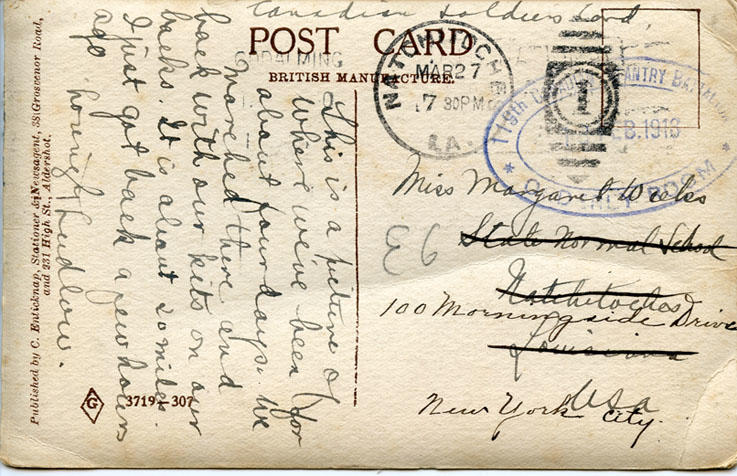 Canadian Soldiers Card,
POST CARD
BRITISH MANUFACTURE.
GODALMING
NATCHITOCHES
MAR 27
7 30PM
LA.
1
119th INFANTRY BATTALION
FEB. 1916
ORDERLY ROOM
This is a picture of
where we've been for
about four days. We
marched there and
back with our kits on our
backs. It is about 20 miles.
I just got back a few hours
ago.
Ludlow.
Miss Margaret Weeks
State Normal School
Natchitoches
100 Morningside Drive
Louisiana
USA
New York City.
36
Published by C. Enticknap, Stationer & Newsagent, 38 Grosvenor Road,
and 231 High St., Aldershot.
G
3719—307